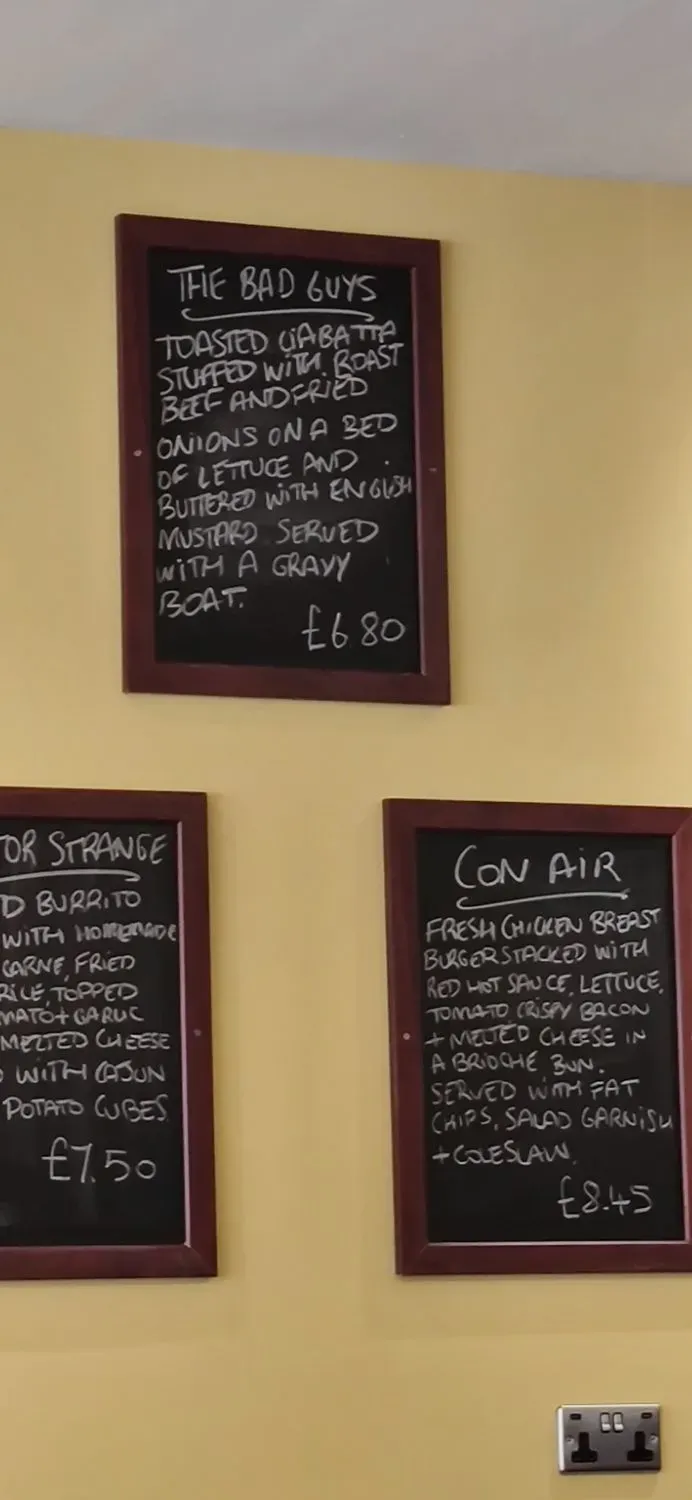 THE BAD GUYS
TOASTED CIABATTA
STUFFED WITH ROAST
BEEF AND FRIED
ONIONS ON A BED
OF LETTUCE AND
BUTTERED WITH ENGLISH
MUSTARD SERVED
WITH A GRAVY
BOAT.
£6.80
TOR STRANGE
D BURRITO
WITH HOMEMADE
CARNE, FRIED
RICE, TOPPED
MATO + GARLIC
MELTED CHEESE
D WITH CAJUN
POTATO CUBES
£7.50
CON AIR
FRESH CHICKEN BREAST
BURGER STACKED WITH
RED HOT SAUCE, LETTUCE,
TOMATO CRISPY BACON
+ MELTED CHEESE IN
A BRIOCHE BUN.
SERVED WITH FAT
CHIPS, SALAD GARNISH
+ COLESLAW.
£8.45